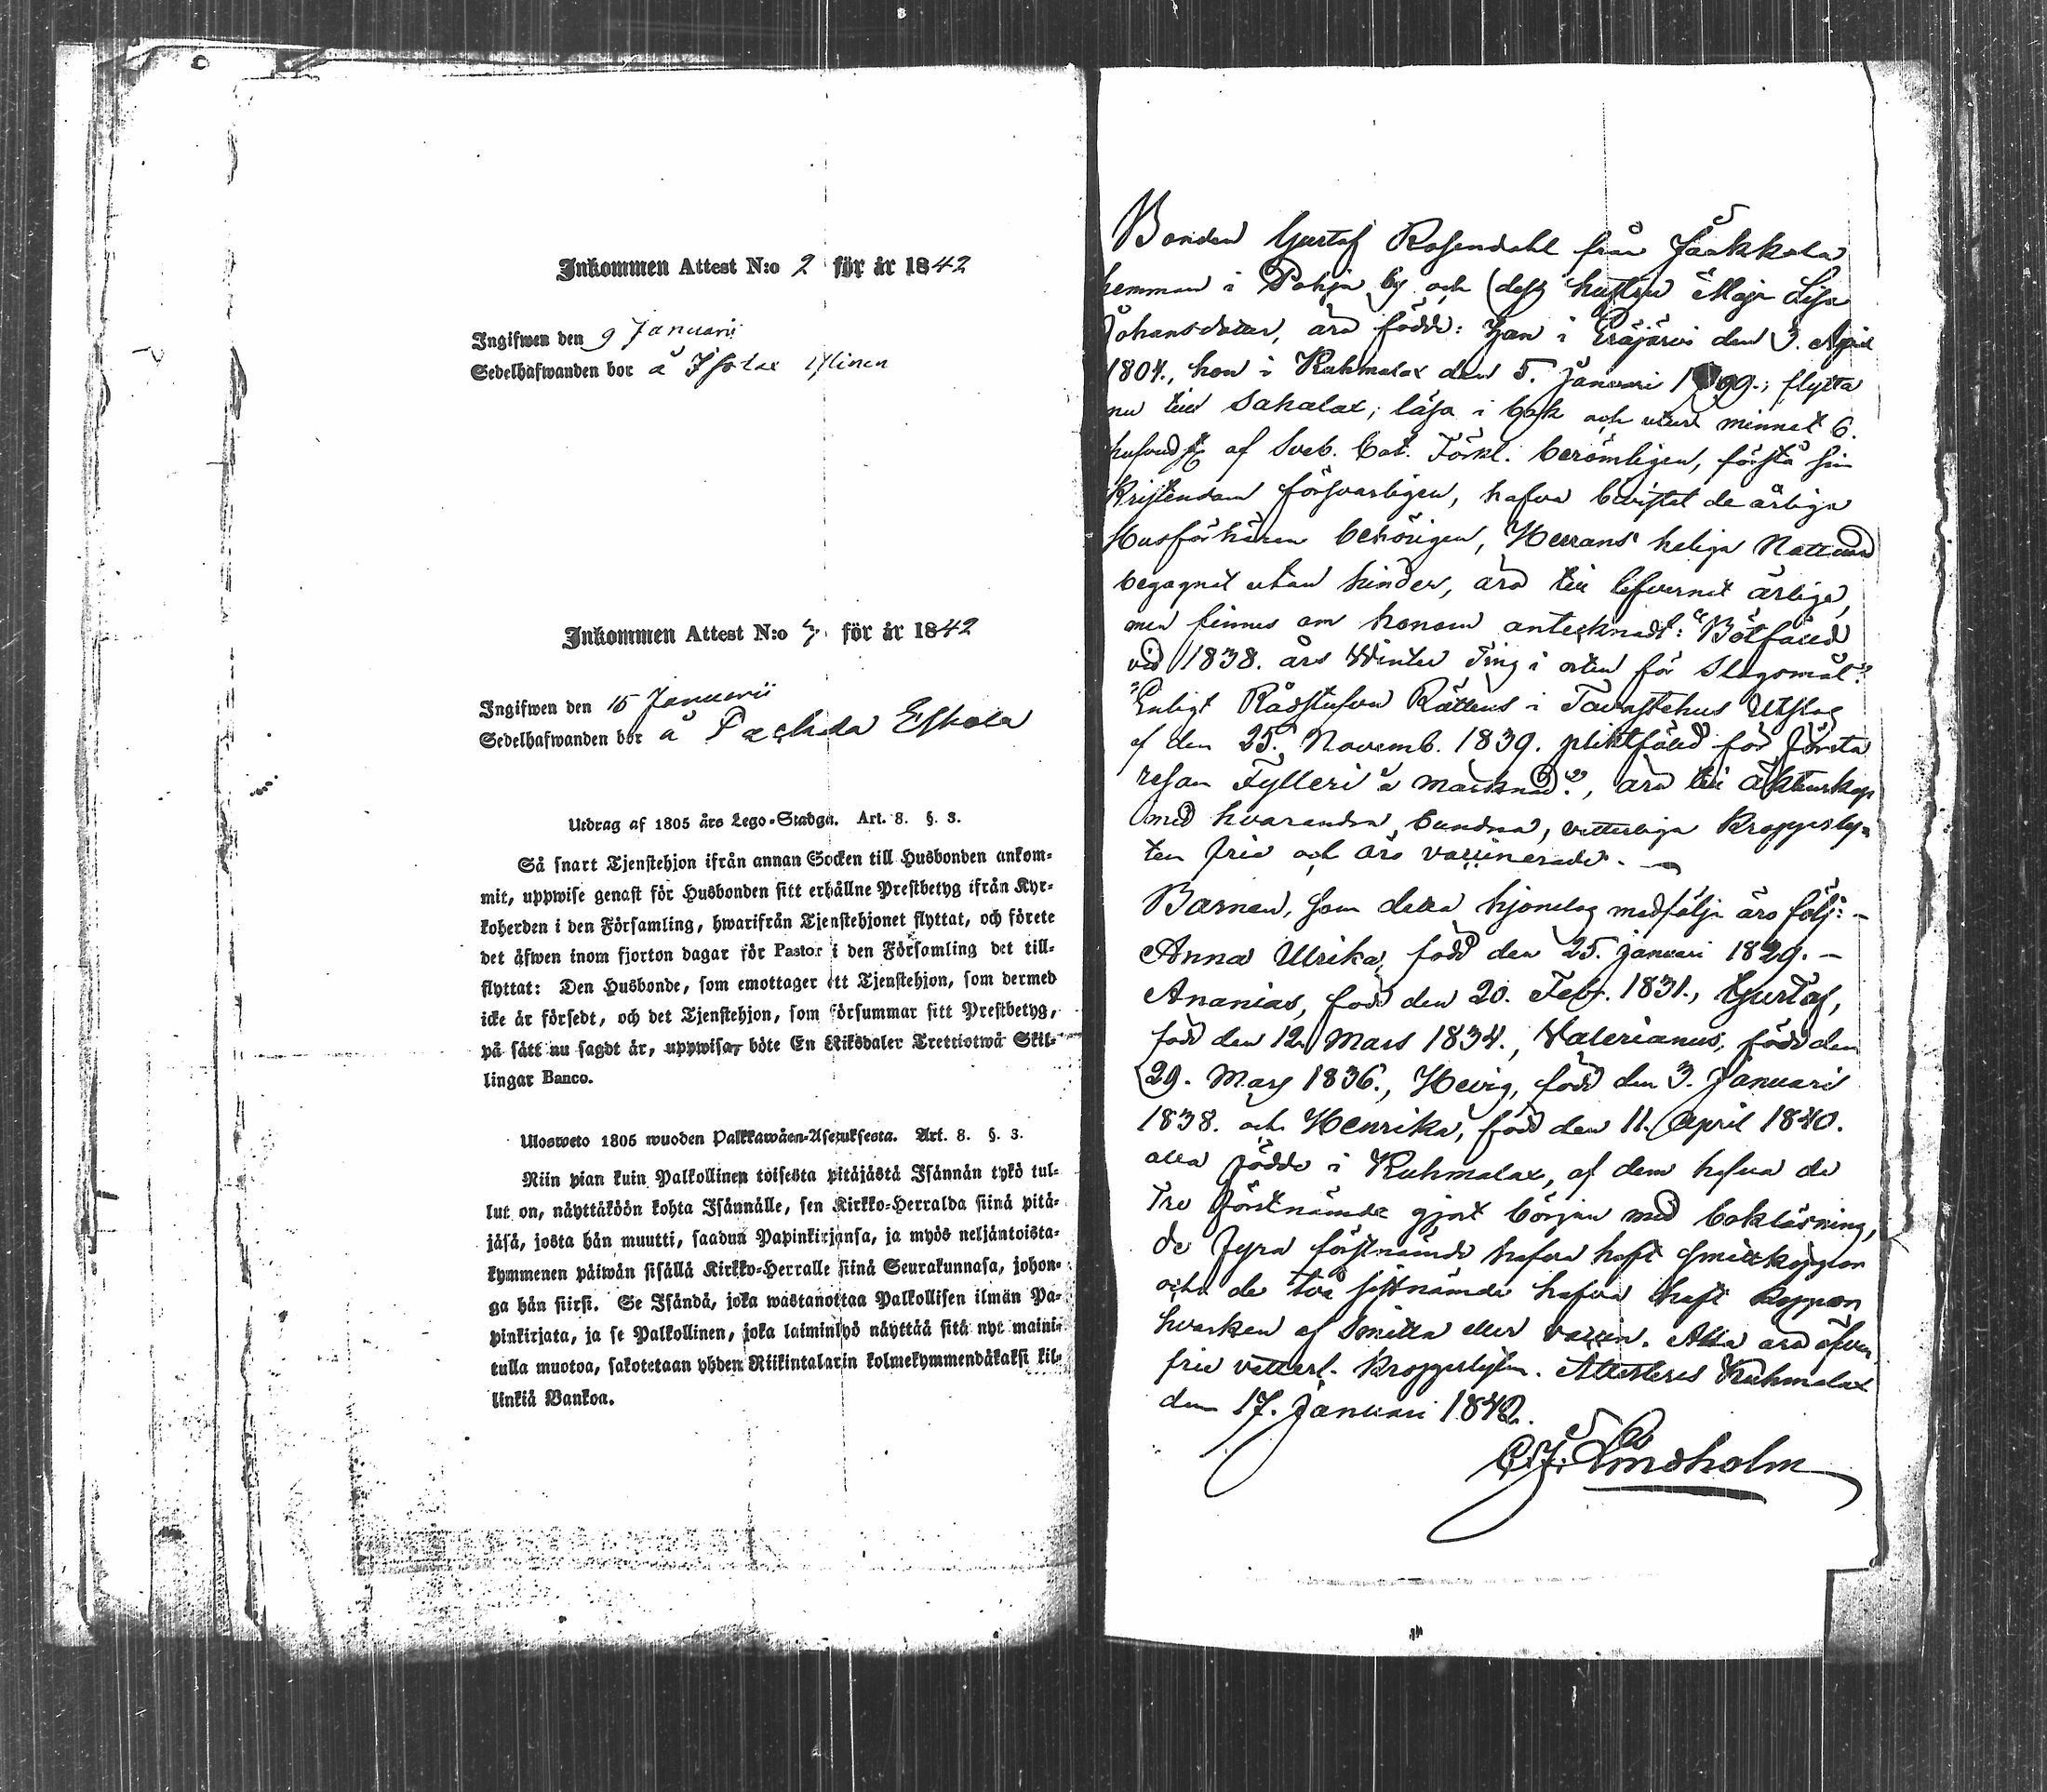 Inkommen Attest N:o 2 för år 1842
Ingifwen den 9 Januarii
Sedelhafwanden bor å Isotal Ylinen
Inkommen Attest N:o 3 för år 1842
Ingifwen den 15 Januarii
Sedelhafwanden bor å Eskola
Utdrag af 1805 års Lego-Stadga. Art. 8. §. 3.
Så snart Tjenstehjon ifrån annan Socken till Husbonden ankom-
mit, uppwise genast för Husbonden sitt erhållne Prestbetyg ifrån Kyr-
koherden i den Församling, hwarifrån Tjenstehjonet flyttat, och förete
det äfwen inom fjorton dagar för Pastor i den Församling det till-
flyttat: Den Husbonde, som emottager ett Tjenstehjon, som dermed
icke är försedt, och det Tjenstehjon, som försummar sitt Prestbetyg,
på sätt nu sagdt är, uppwisa, böte En Riksdaler Trettiotwå Skil-
lingar Banco.
Ulosweto 1805 wuoden Palkkawäen-Asetuksesta. Art. 8. §. 3.
Niin pian kuin Palkollinen toisesta pitäjästä Isännän tykö tul-
lut on, näyttäköön kohta Isännälle, sen Kirkko-Herralda siinä pitä-
jäsä, josta hän muutti, saadun Papinkirjansa, ja myös neljäntoista-
kymmenen päiwän sisällä Kirkko-Herralle siinä Seurakunnasa, johon-
ga hän siirsi. Se Isändä, joka wastanottaa Palkollisen ilmän Pa-
pinkirjata, ja se Palkollinen, joka laiminlyö näyttää sitä nyt maini-
tulla muotoa, sakotetaan yhden Riikintalarin kolmekymmendäkaksi kil-
linkiä Bankoa.
Bonden Gustaf Rosendahl från Jaakkola
hemman i Pohja by och dess hustru Maja Lisa
Johansdotter, äro födde: han i Eräjärvi den 3. April
1804., hon i Kuhmalax den 5. Januari 1799.; flytta
nu till Sahalax; läsa i bok och utur minnet 6.
hufvudst: af Sveb. Cat. Förkl. berömligen, förstå sin
Kristendom försvarligen, hafva bevistat de årliga
Husförhören behörigen, Herrans heliga Nattvard
begagnat utan hinder, äro till lefvernet ärlige,
men finnes om honom antecknadt: "Bötfälld
vid 1838. års Winter Ting i orten för Slagsmål."
"Enligt Rådstufvu Rättens i Tavastehus Utslag
af den 25. Novemb. 1839. pliktfälld för första
resan Fylleri å marknad.", äro till äktenskap
med hvarandra bundna, vetterliga kroppsly-
ten frie och äro vaccinerade. —
Barnen, som detta hjonelag medfölja äro följ: -
Anna Ulrika, född den 25. januari 1829. -
Ananias, född den 20. Febr. 1831., Gustaf,
född den 12. Mars 1834., Valerianus, född den
29. Mars 1836., Hevig, född den 3. Januari
1838. och Henrika, född den 11. April 1840.
alla födde i Kuhmalax, af dem hafva de
tre förstnämde gjort början med bokläsning,
de fyra förstnämde hafva haft smittkoppor
och de två sistnämde hafva haft koppor
hvarken af smitta eller vaccin. Alla äro äfven
frie vetterl. kroppslyten. Attesteras Kuhmalax
den 17. Januari 1842.
C. J. Lindholm